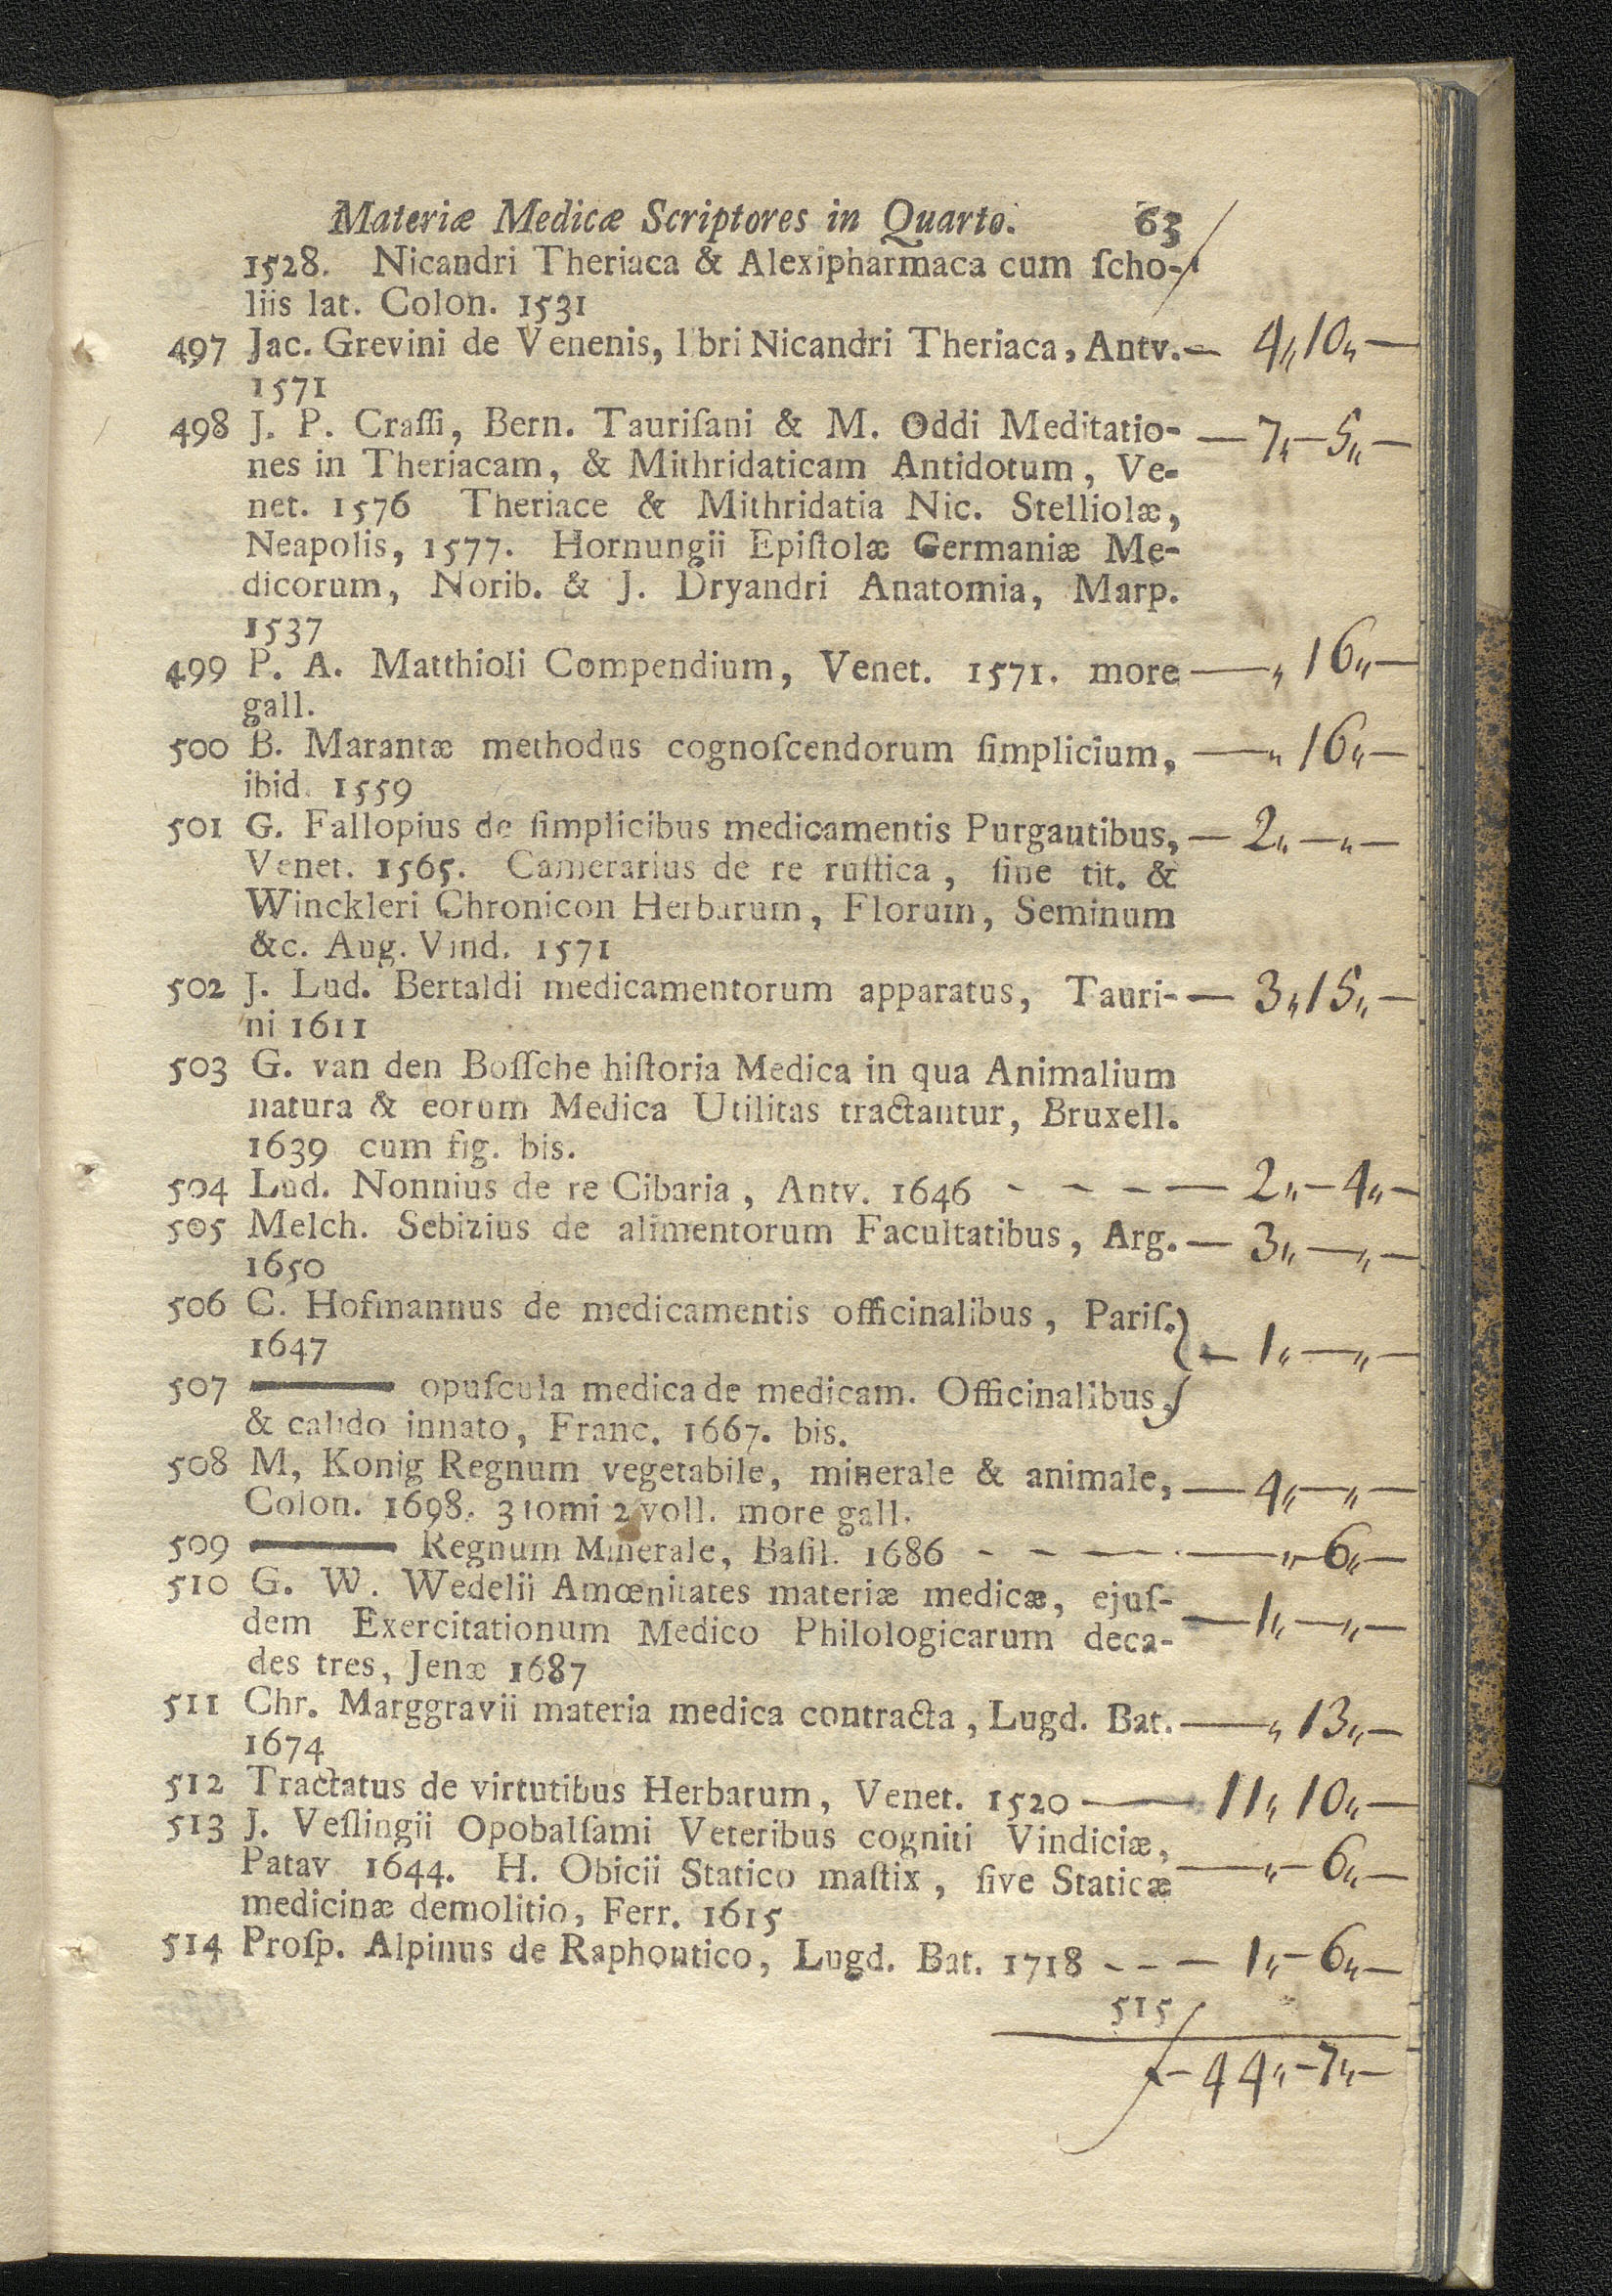 Materiæ Medicæ Scriptores in Quarto. 63
1528. Nicandri Theriaca & Alexipharmaca cum ſcho-
liis lat. Colon. 1531
497 Jac. Grevini de Venenis, l bri Nicandri Theriaca, Antv. — 4,, 10,, —
1571
498 J. P. Craſſi, Bern. Tauriſani & M. Oddi Meditatio- — 7,, — 5,, —
nes in Theriacam, & Mithridaticam Antidotum, Ve-
net. 1576 Theriace & Mithridatia Nic. Stelliolæ,
Neapolis, 1577. Hornungii Epiſtolæ Germaniæ Me-
dicorum, Norib. & J. Dryandri Anatomia, Marp.
1537
499 P. A. Matthioli Compendium, Venet. 1571. more — ,, 16,, —
gall.
500 B. Marantæ methodus cognoſcendorum ſimplicium, — ,, 16,, —
ibid. 1559
501 G. Fallopius de ſimplicibus medicamentis Purgautibus, — 2,, — ,, —
Venet. 1565. Camerarius de re ruſtica, ſine tit. &
Winckleri Chronicon Herbarum, Florum, Seminum
&c. Aug. Vind. 1571
502 J. Lud. Bertaldi medicamentorum apparatus, Tauri- — 3,, 15,, —
ni 1611
503 G. van den Boſſche hiſtoria Medica in qua Animalium
natura & eorum Medica Utilitas tractantur, Bruxell.
1639 cum fig. bis.
504 Lud. Nonnius de re Cibaria, Antv. 1646 - - - — 2,, — 4,, —
505 Melch. Sebizius de alimentorum Facultatibus, Arg. — 3,, — ,, —
1650
506 C. Hofmannus de medicamentis officinalibus, Pariſ.
1647 } — 1,, — ,, —
507 ——— opuſcula medica de medicam. Officinalibus,
& calido innato, Franc. 1667. bis.
508 M, Konig Regnum vegetabile, minerale & animale, — 4,, — ,, —
Colon. 1698. 3 tomi 2 voll. more gall.
509 ——— Regnum Minerale, Baſil. 1686 - - — — ,, — 6,, —
510 G. W. Wedelii Amœnitates materiæ medicæ, ejuſ-
dem Exercitationum Medico Philologicarum deca- — 1,, — ,, —
des tres, Jenæ 1687
511 Chr. Marggravii materia medica contracta, Lugd. Bat. — ,, 13,, —
1674
512 Tractatus de virtutibus Herbarum, Venet. 1520 — 11,, 10,, —
513 J. Veſlingii Opobalſami Veteribus cogniti Vindiciæ,
Patav 1644. H. Obicii Statico maſtix, ſive Staticæ — ,, — 6,, —
medicinæ demolitio, Ferr. 1615
514 Proſp. Alpinus de Raphontico, Lugd. Bat. 1718 - - — 1,, — 6,, —
515
ƒ — 44,, — 7,, —